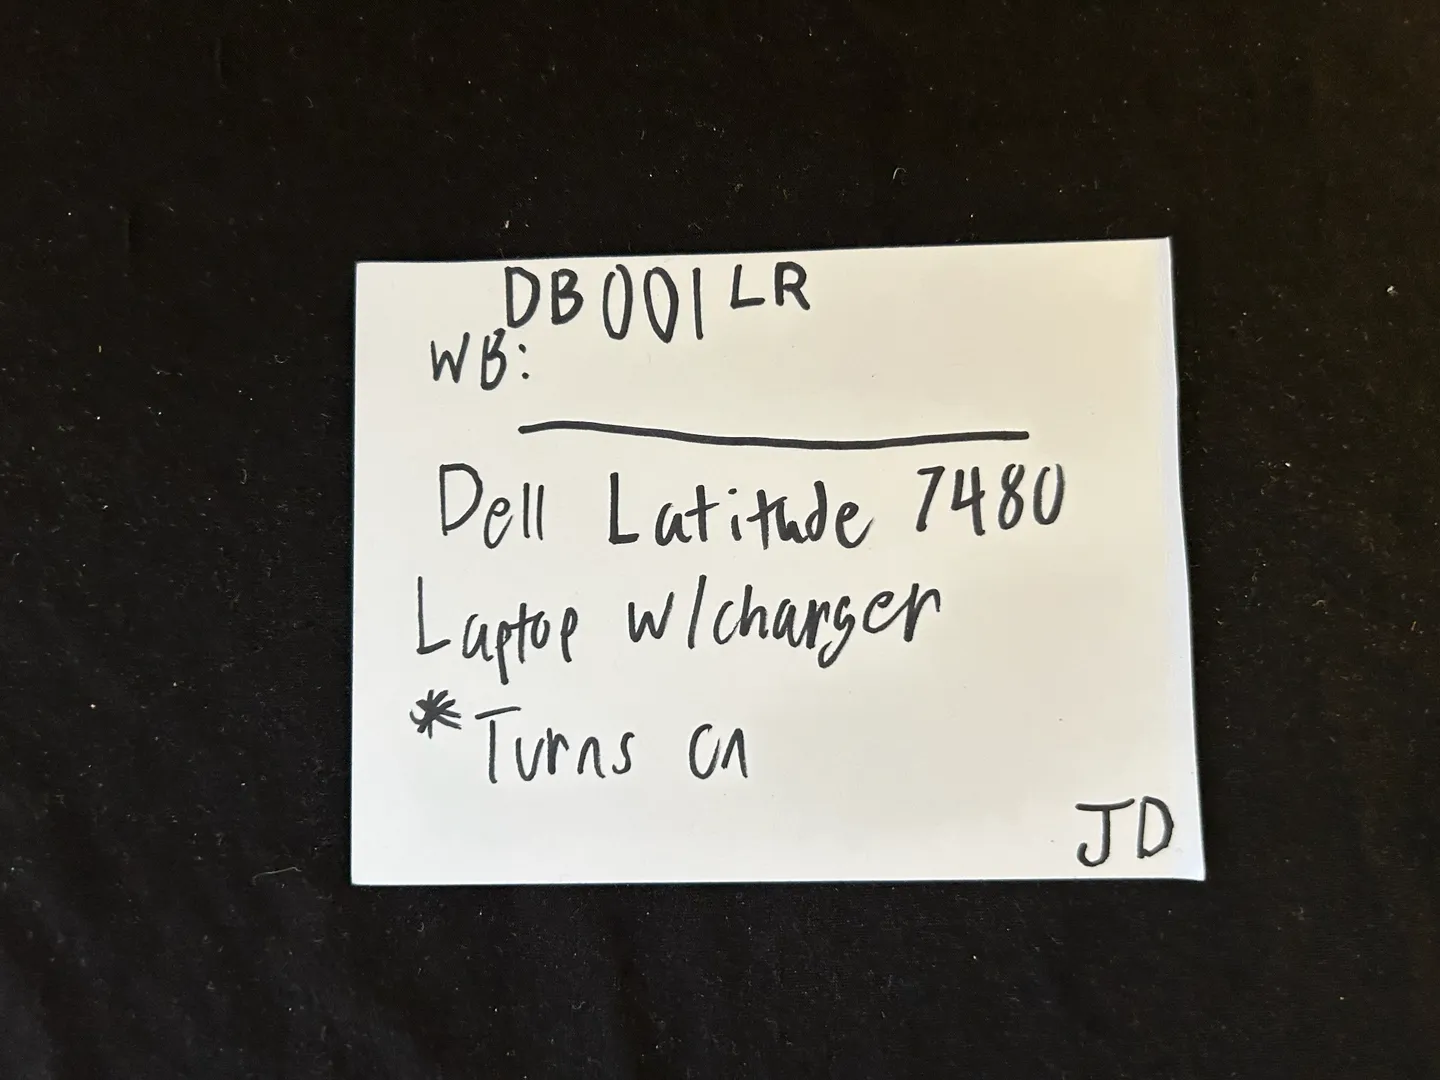 DB001LR
WB:
Dell Latitude 7480
Laptop w/charger
*Turns on
JD